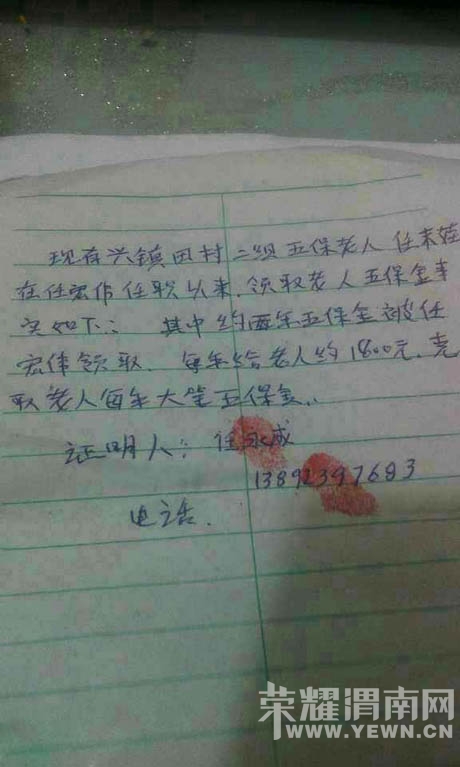 现有兴镇田村二组五保老人任来娃
在任宏伟任职以来.领取老人五保金事
实如下：其中约两年五保金被任
宏伟领取.每年给老人约1800元.克
取老人每年大笔五保金..
证明人：任永成
13892397683
电话.
荣耀渭南网
WWW.YEWN.CN